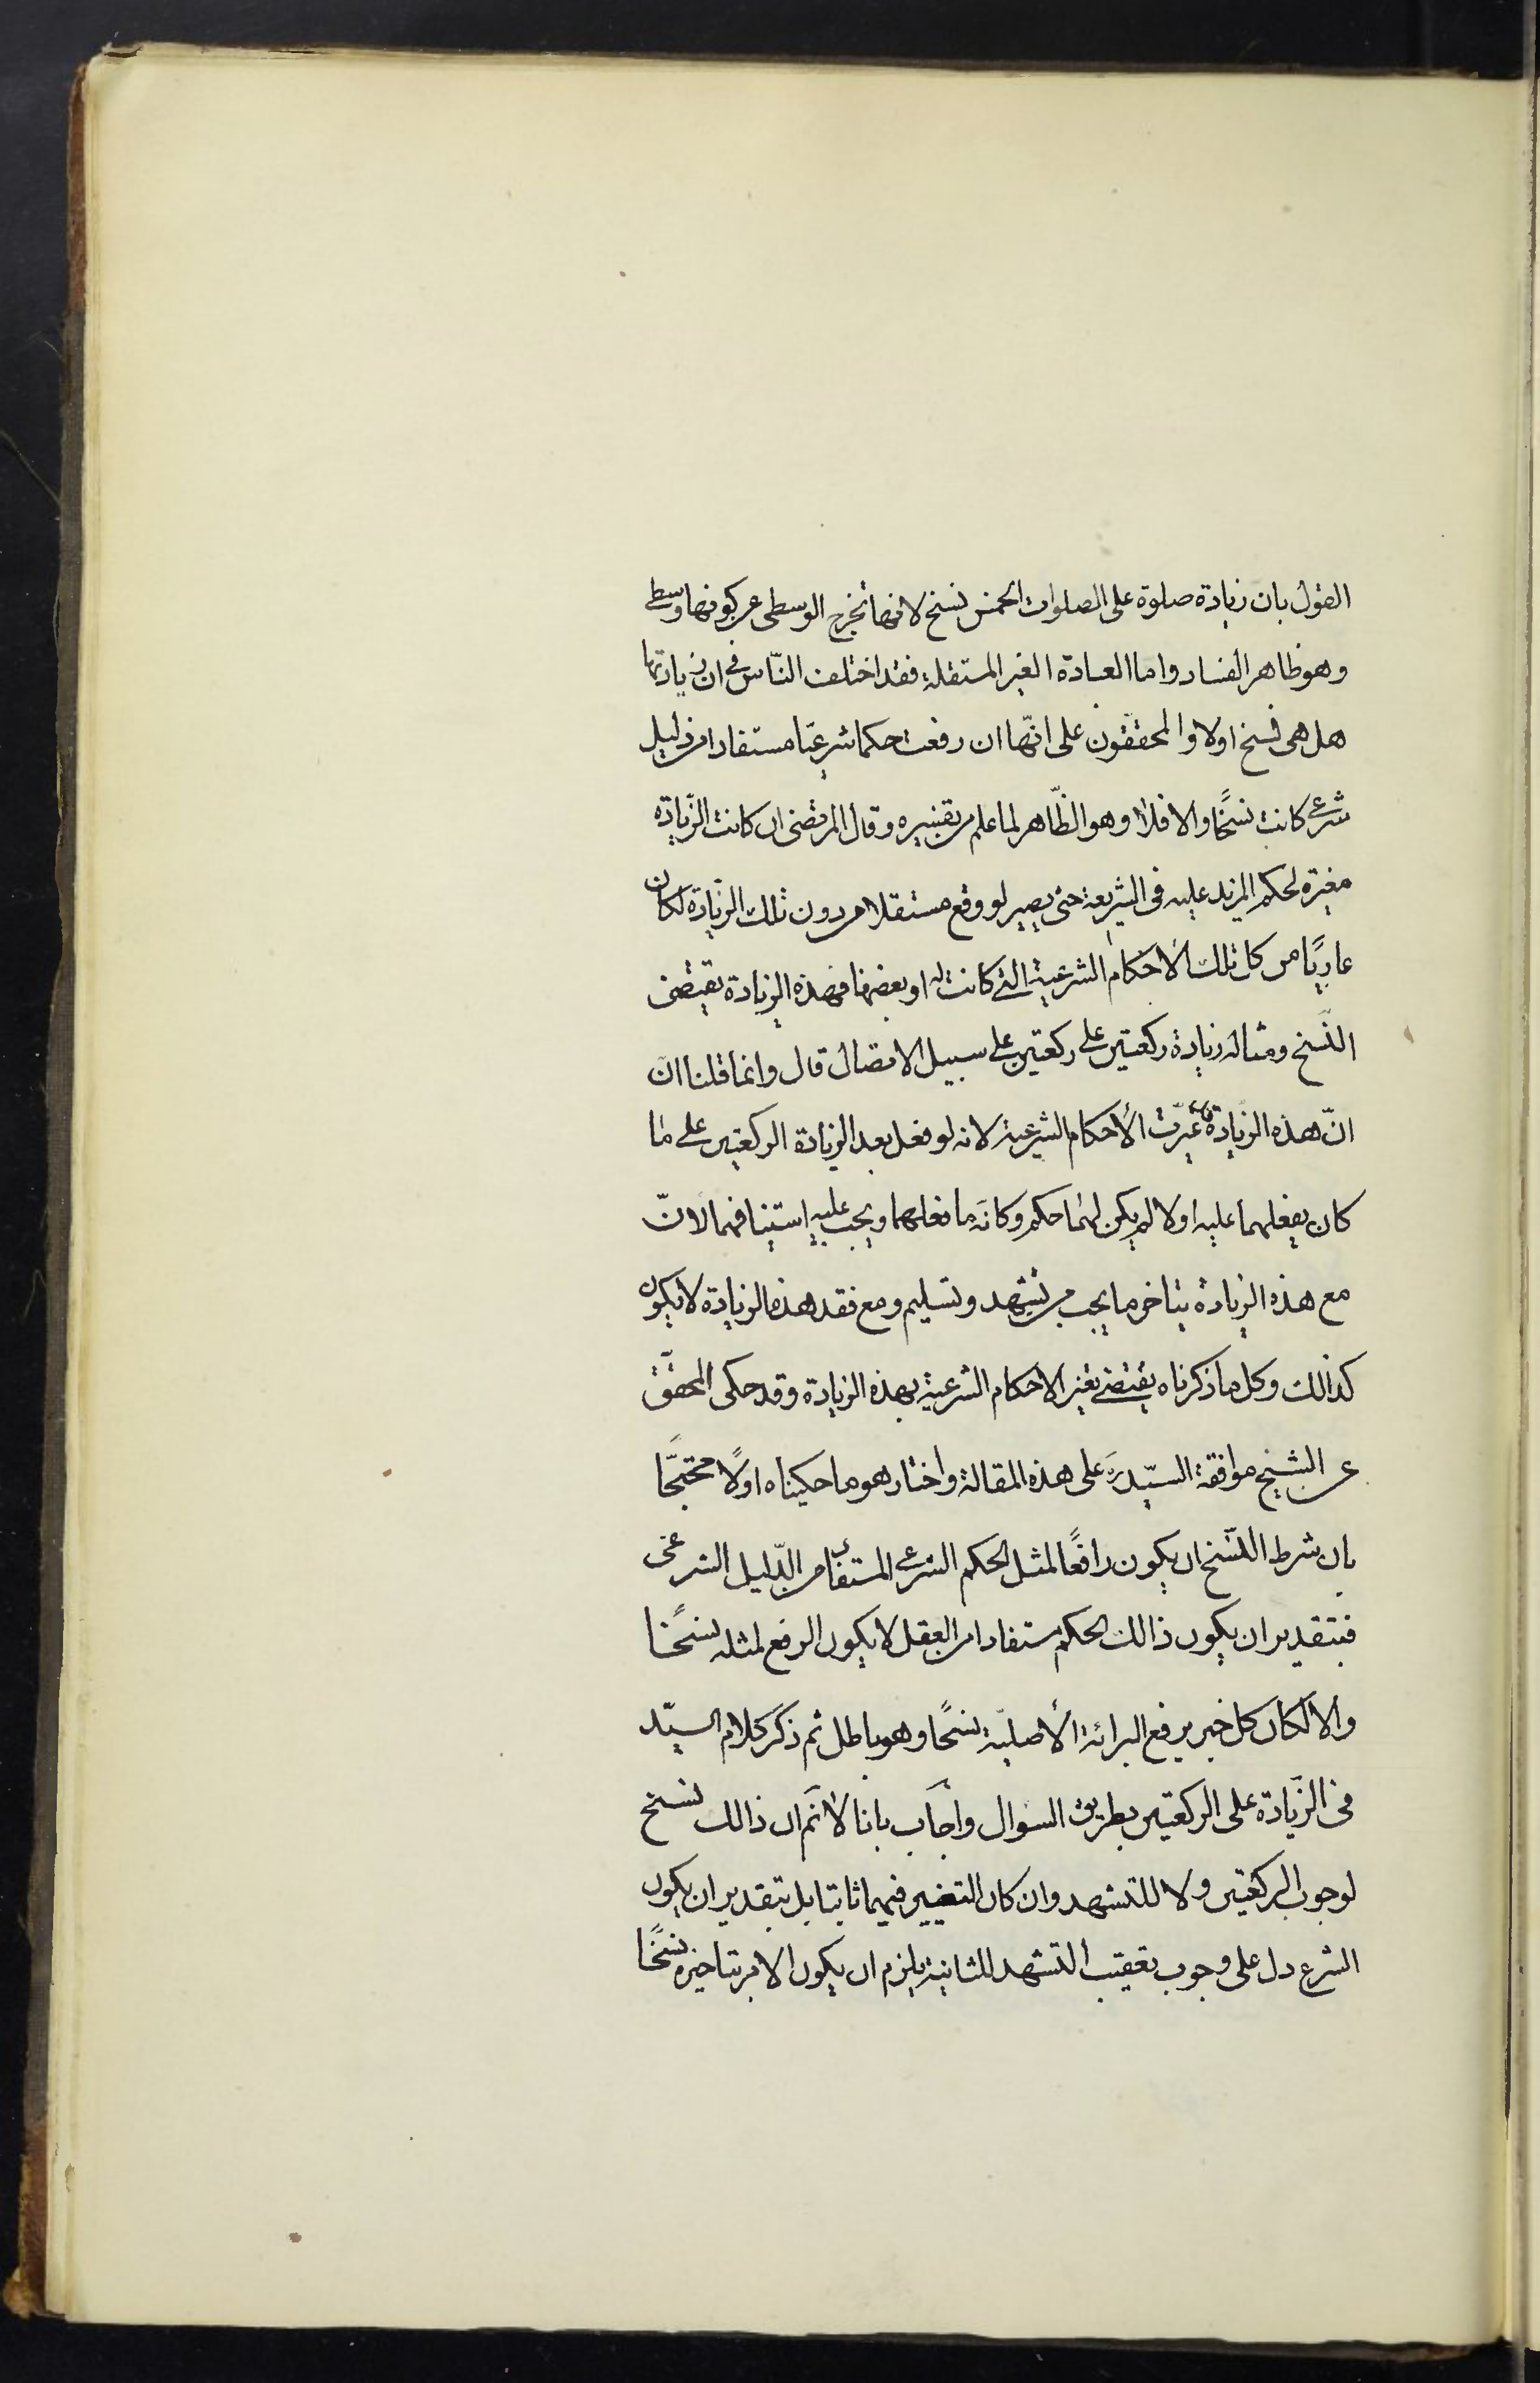 القول بان زيادة صلوة على الصلوات الخمس نسخ لانها تخرج الوسطى عن كونها وسطى
وهو ظاهر الفساد واما العبادة الغير المستقلة فقد اختلف النّاس فى ان زيادتها
هل هى نسخ اولا والمحققون على انّها ان رفعت حكما شرعيّا مستفادا من دليل
شرعى كانت نسخًا والا فلا وهو الظّاهر لما علم من تفسيره وقال المرتضى ان كانت الزّيادة
مغيرة لحكم المزيد عليه فى الشريعة حتى يصير لو وقع مستقلا من دون تلك الزّيادة لكان
عاريًا من كل تلك الأحكام الشرعية التى كانت له او بعضها فهذه الزيادة يقتضى
النّسخ ومثاله زيادة ركعتين على ركعتين على سبيل الاتصال قال وانما قلنا انّ
انّ هذه الزّيادة قد غيرّت الأحكام الشرعية لانه لو فعل بعد الزيادة الركعتين على ما
كان يفعلهما عليه اولا لم يكن لهما حكم وكانّه ما فعلهما ويجب عليه استينافهما لانّ
مع هذه الزيادة يتاخر ما يجب من تشهد وتسليم ومع فقد هذه الزيادة لا يكون
كذالك وكل ما ذكرناه يقتضى تغير الاحكام الشرعية بهذه الزيادة وقد حكى المحقّق
عن الشيخ موافقة السيّد ره على هذه المقالة واختار هو ما حكيناه اولًا محتجًّا
بان شرط النّسخ ان يكون رافعًا لمثل الحكم الشرعى المستفاد من الدّليل الشرعى
فبتقدير ان يكون ذالك الحكم مستفادا من العقل لا يكون الرفع لمثله نسخًا
والا لكان كل خبر يرفع البرائة الأصليّة نسخًا وهو باطل ثم ذكر كلام السيّد
فى الزّيادة على الركعتين بطريق السوال واجاب بانا لا نم ان ذالك نسخ
لوجوب الركعتين ولا للتشهد وان كان التغيير فيهما ثابتا بل بتقدير ان يكون
الشرع دل على وجوب تعقيب التشهد للثانية يلزم ان يكون الامر بتاخيره نسخًا